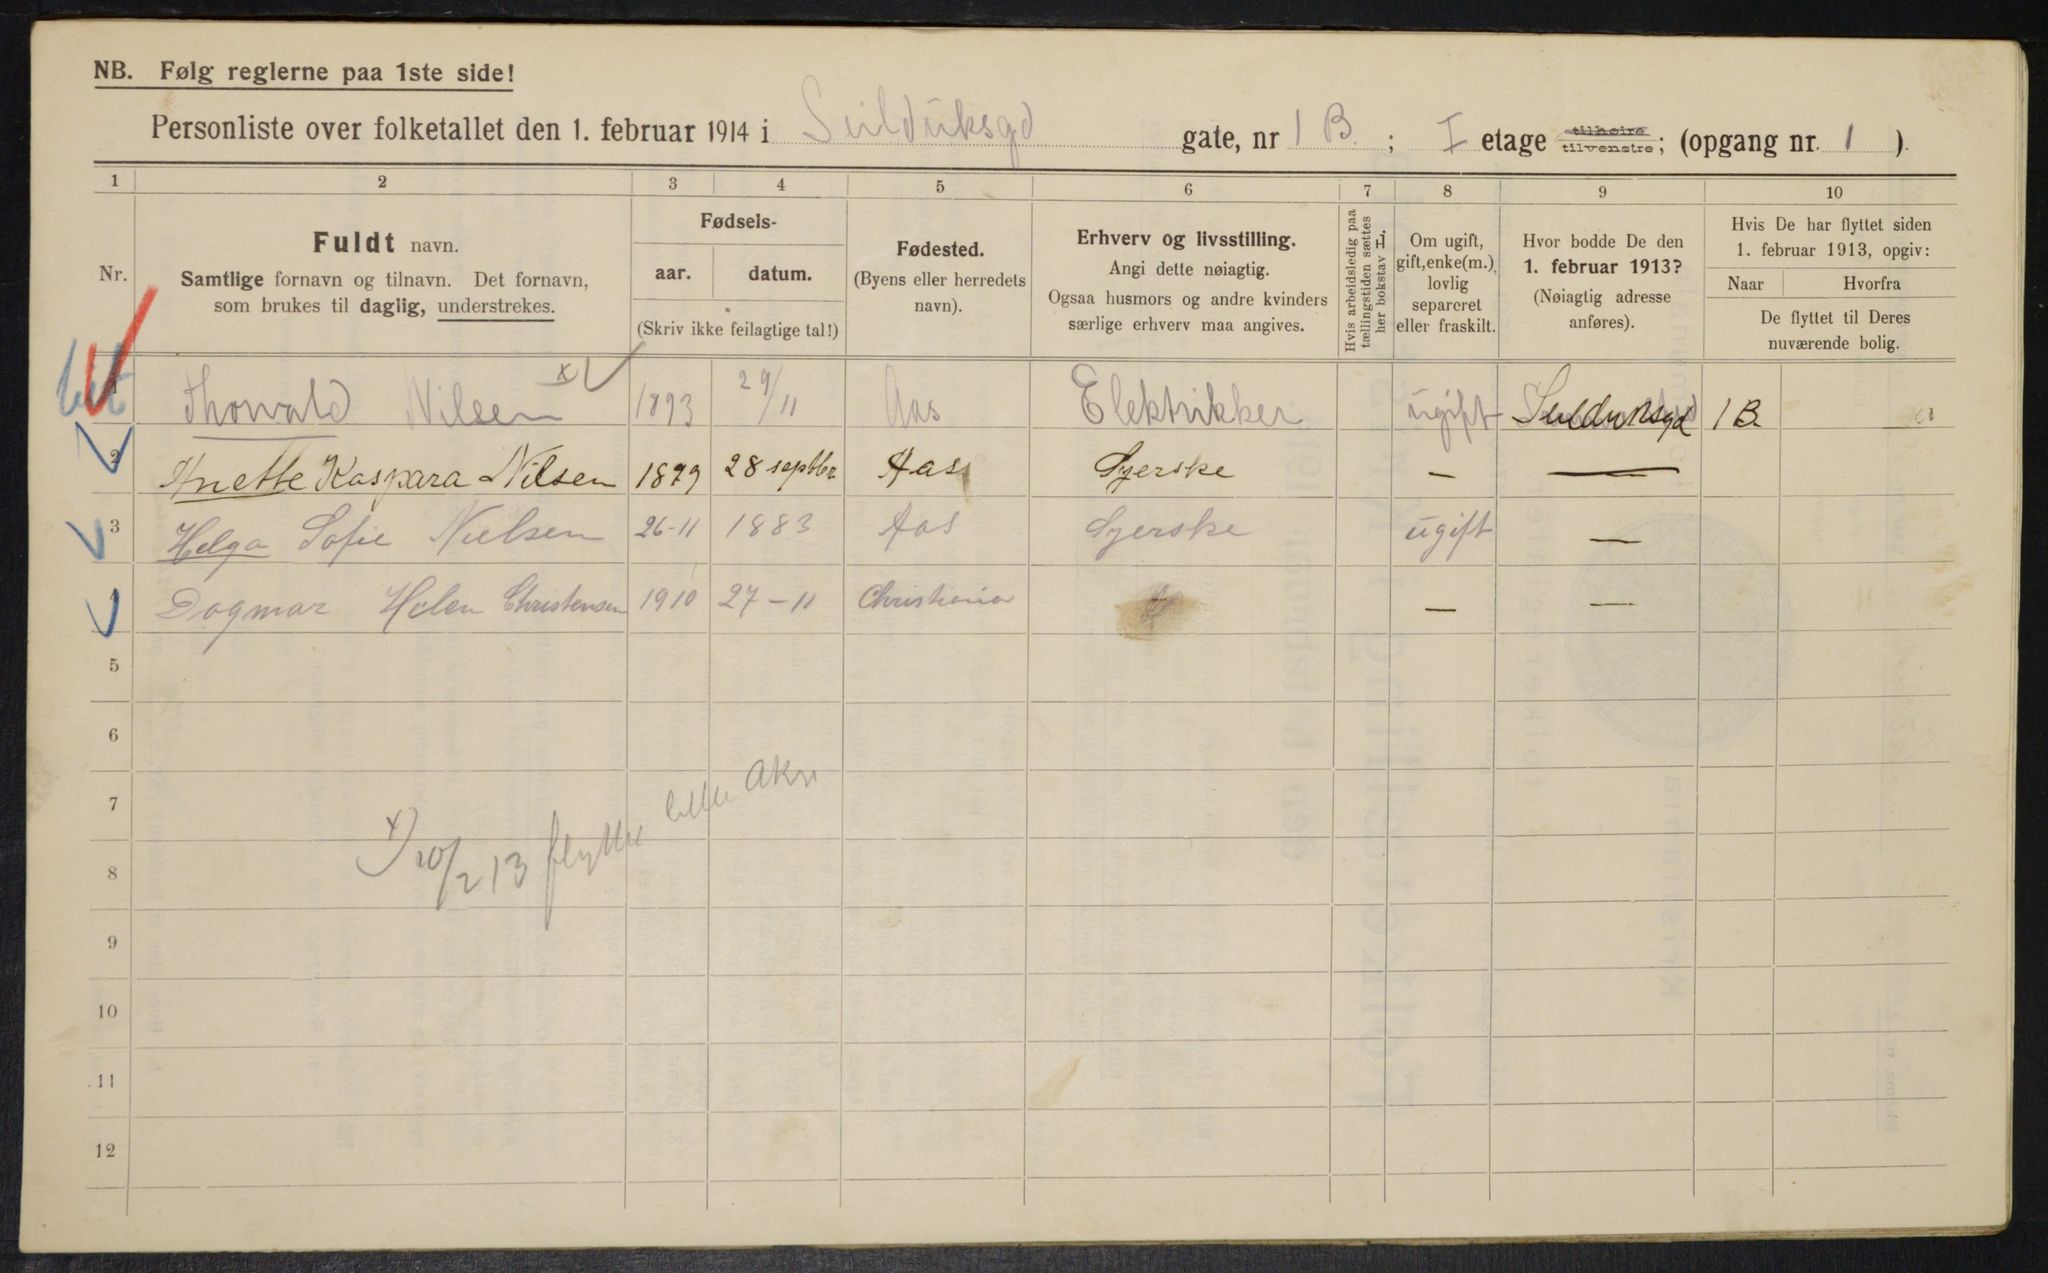 NB. Følg reglerne paa 1ste side!
Personliste over folketallet den 1. februar 1914 i Seilduksgd gate, nr 1 B. ; I etage tilhøire tilvenstre; (opgang nr. 1 ).
1 2 3 4 5 6 7 8 9 10
Nr.
Fuldt navn.
Samtlige fornavn og tilnavn. Det fornavn,
som brukes til daglig, understrekes.
Fødsels-
aar. datum.
(Skriv ikke feilagtige tal!)
Fødested.
(Byens eller herredets
navn).
Erhverv og livsstilling.
Angi dette nøiagtig.
Ogsaa husmors og andre kvinders
særlige erhverv maa angives.
Hvis arbeidsledig paa
tællingstiden sættes
her bokstav L.
Om ugift,
gift, enke(m.),
lovlig
separeret
eller fraskilt.
Hvor bodde De den
1. februar 1913?
(Nøiagtig adresse
anføres).
Hvis De har flyttet siden
1. februar 1913, opgiv:
Naar Hvorfra
De flyttet til Deres
nuværende bolig.
1 Thorvald Nilsen x 1893 29/11 Aas Elektrikker ugift Seilduksgd 1 B.
2 Anette Kaspara Nilsen 1879 28 septbr Aas Syerske — —
3 Helga Sofie Nielsen 26-11 1883 Aas Syerske ugift —
4 Dagmar Helen Christensen 1910 27-11 Christiania — —
5
6
7
x) 10/2 13 flyttet Aker
8
9
10
11
12